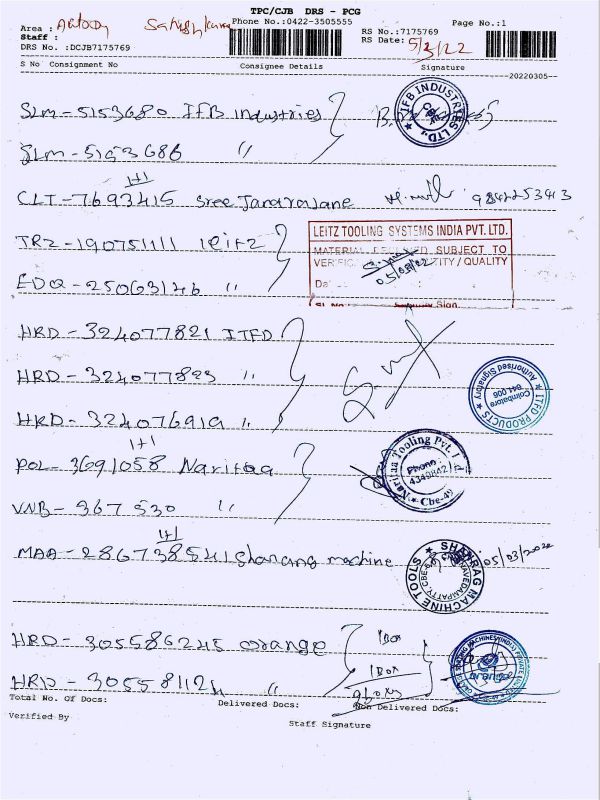 TPC/CJB DRS - PCG
Area :
Staff :
Phone No.:0422-3505555
Page No.:1
RS No.:7175769
DRS No. :DCJB7175769
RS Date: 5/3/22
S No Consignment No Consignee Details Signature
20220305
SLM-5153680 IFB Industries
IFB INDUSTRIES LTD.
SLM-5153686 "
1+1
CLT-7693415 Sree 9842253413
TRZ-190751111 Leitz
LEITZ TOOLING SYSTEMS INDIA PVT. LTD.
MATERIAL RECEIVED SUBJECT TO
VERIFIC TITY / QUALITY
05/03/22
EDQ-25063146 "
Sign.
HRD-324077821 ITFD
HRD-324077893 "
ITFD PRODUCTS
Coimbatore
641 006
Authorised Signatory
HRD-324076919 "
1+1
POL-3691058 Naritaa
Naritaa Tooling Pvt.
Phone
Cbe-49
VNB-367530 "
1+1
MAA-286738541 machine
05/03/2022
MACHINE TOOLS
HRD-305586245 orange
1 Box
HRD-305581124 "
1 Box
orange
Total No. Of Docs:
Delivered Docs:
Non Delivered Docs:
Verified By
Staff Signature